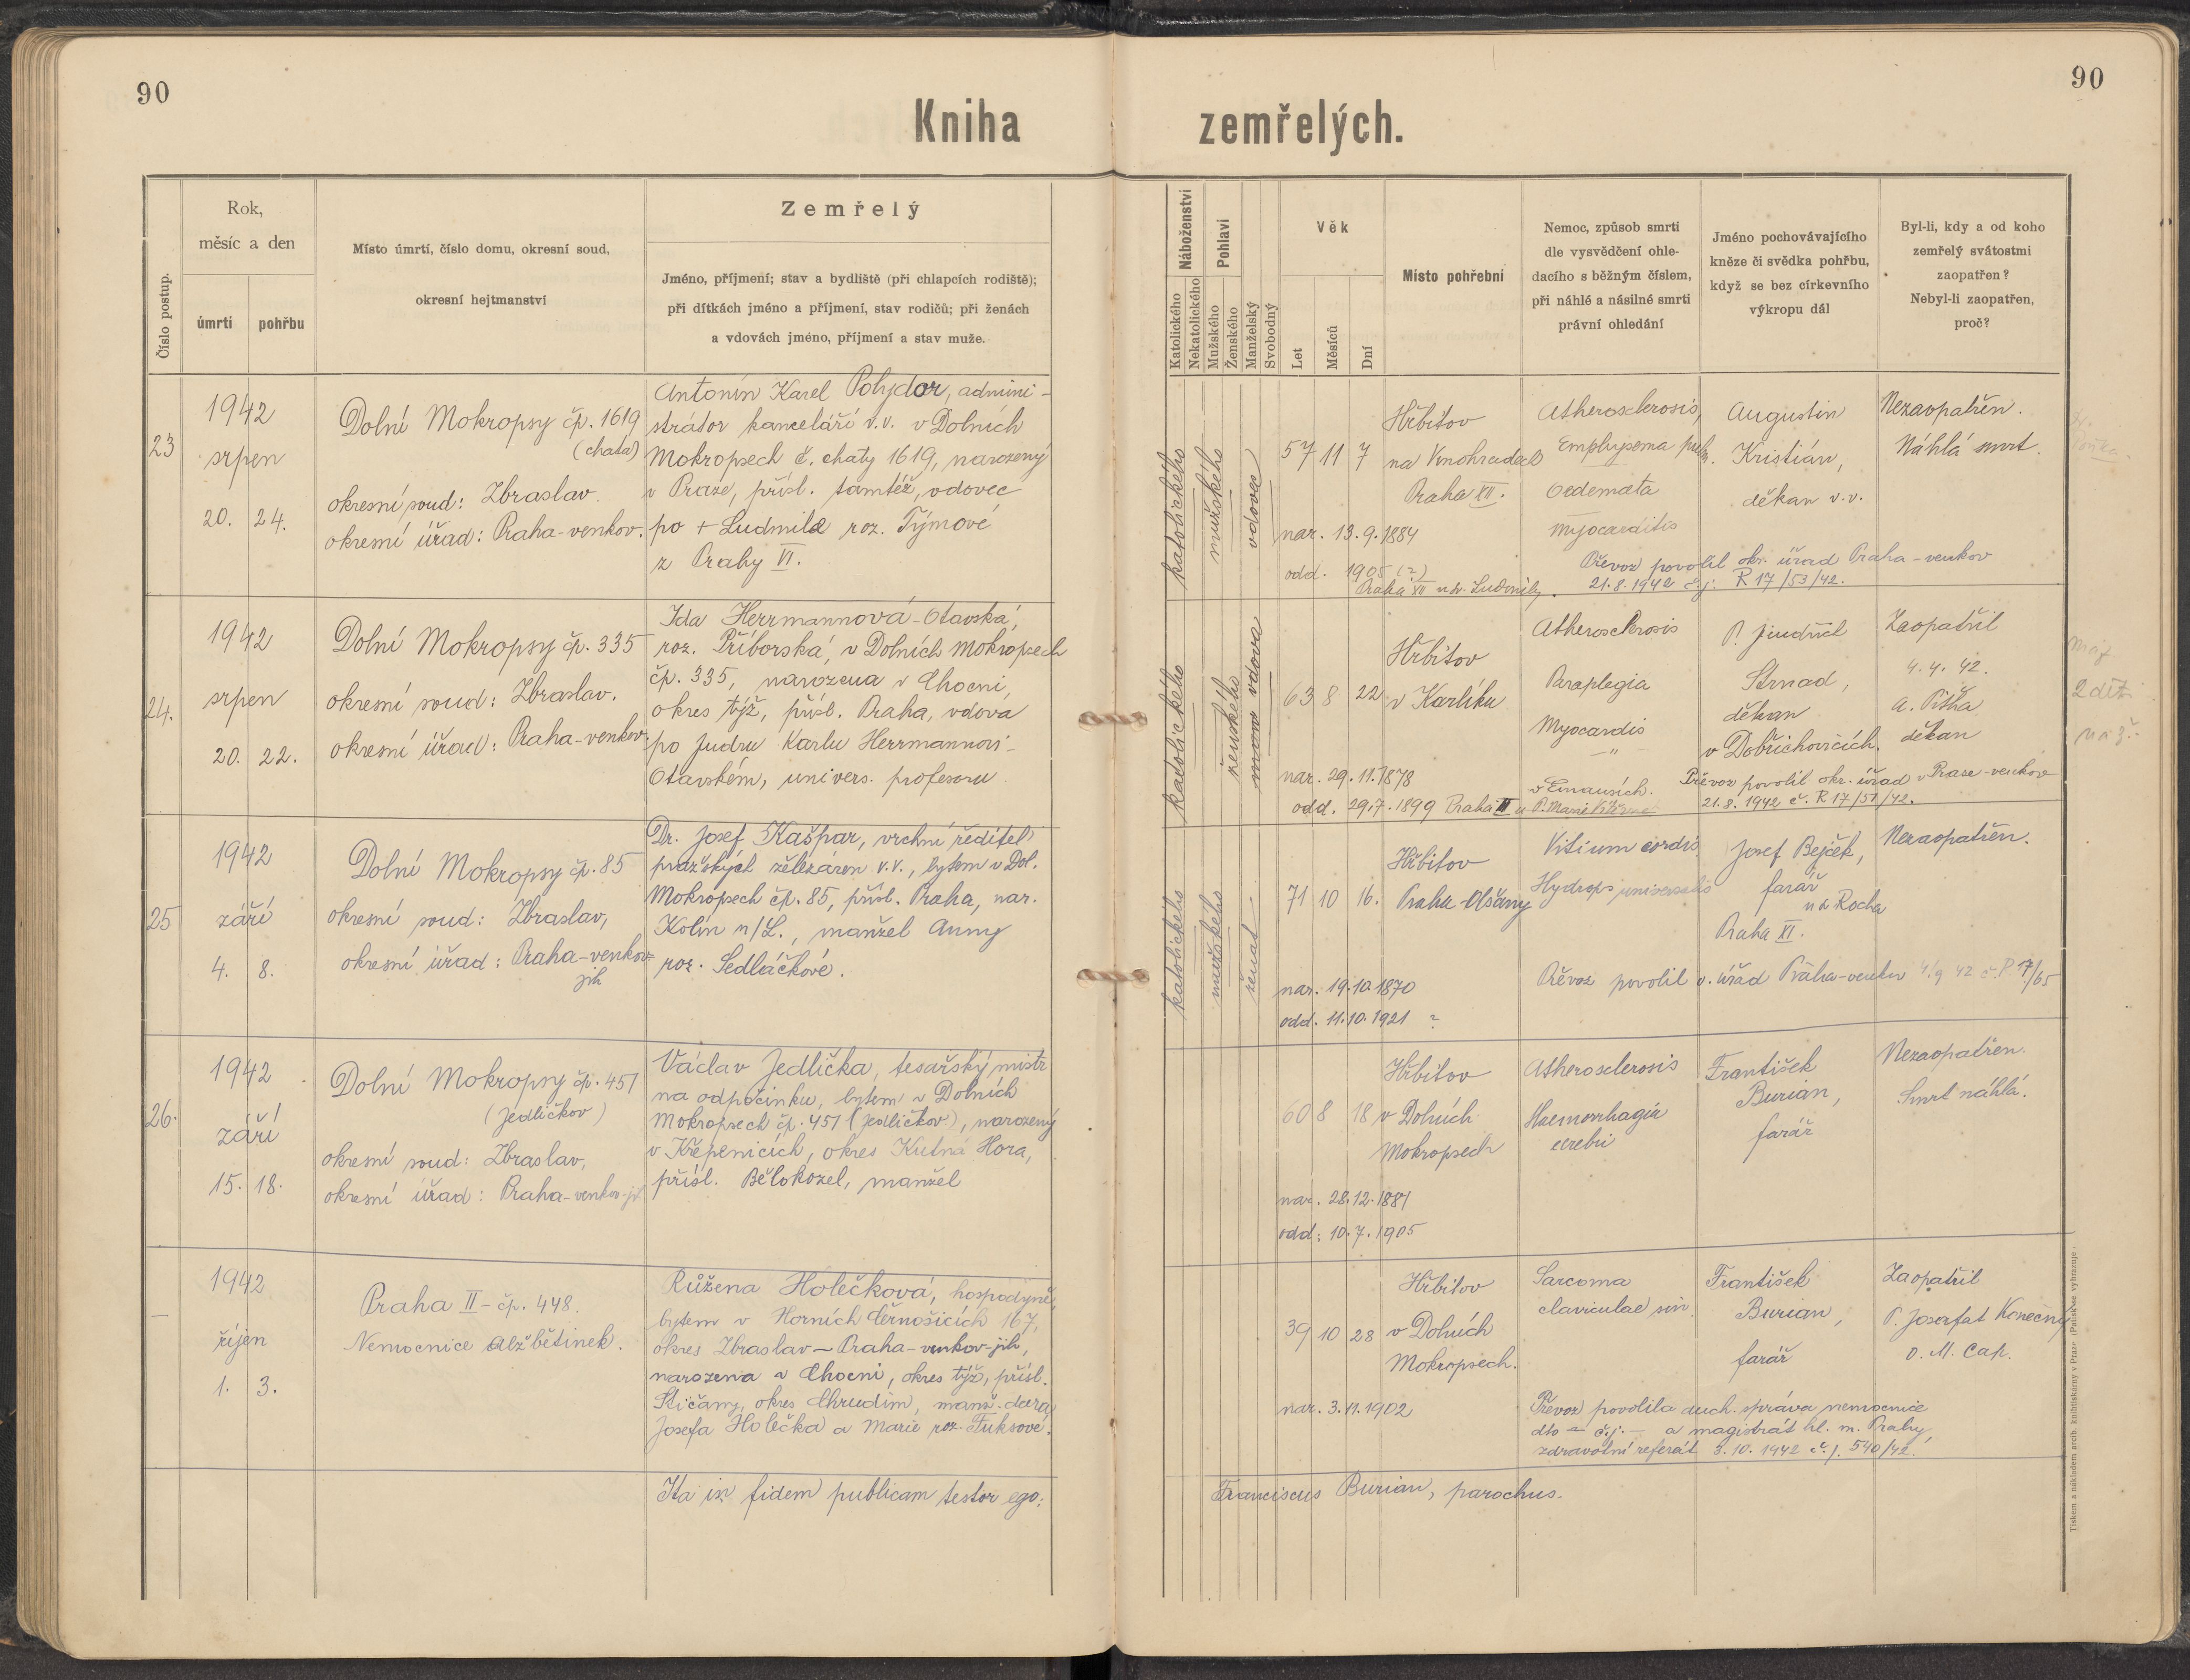 90
90
Kniha zemřelých.
Číslo postup.
Rok,
měsíc a den
úmrtí
pohřbu
Místo úmrtí, číslo domu, okresní soud,
okresní hejtmanství
Zemřelý
Jméno, příjmení; stav a bydliště (při chlapcích rodiště);
při dítkách jméno a příjmení, stav rodičů; při ženách
a vdovách jméno, příjmení a stav muže.
Náboženství
Katolického
Nekatolického
Pohlaví
Mužského
Ženského
Manželský
Svobodný
Věk
Let
Měsíců
Dní
Místo pohřební
Nemoc, způsob smrti
dle vysvědčení ohle-
dacího s běžným číslem,
při náhlé a násilné smrti
právní ohledání
Jméno pochovávajícího
kněze či svědka pohřbu,
když se bez církevního
výkropu dál
Byl-li, kdy a od koho
zemřelý svátostmi
zaopatřen?
Nebyl-li zaopatřen,
proč?
23
1942
srpen
20. 24.
Dolní Mokropsy čp. 1619
(chata)
okresní soud: Zbraslav.
okresní úřad: Praha-venkov.
Antonín Karel Polydor, admini-
strátor kanceláří v.v. v Dolních
Mokropsech č. chaty 1619, narozený
v Praze, přísl. tamtéž, vdovec
po + Ludmile roz. Týmové
z Prahy VI.
katolického
mužského
vdovec
57 11 7
nar. 13.9.1884
odd. 1905 (?)
Praha XII u sv. Ludmily.
Hřbitov
na Vinohradech
Praha XII.
Atherosclerosis,
Emphysema pulm.
Oedemata
Myocarditis
Augustin
Kristián,
děkan v.v.
Nezaopatřen.
Náhlá smrt.
Převoz povolil okr. úřad Praha-venkov
21.8.1942 č.j. R 17/53/42.
24.
1942
srpen
20. 22.
Dolní Mokropsy čp. 335
okresní soud: Zbraslav.
okresní úřad: Praha-venkov.
Ida Herrmannová-Otavská,
roz. Příborská, v Dolních Mokropsech
čp. 335, narozena v Chocni,
okres týž, přísl. Praha, vdova
po Judru Karlu Herrmannovi-
Otavském, univers. profesoru
katolického
ženského
vdova
63 8 22
nar. 29.11.1878
odd. 29.7.1899 Praha II u P. Marie
v Emausích.
Hřbitov
v Karlíku
Atherosclerosis
Paraplegia
Myocardis
P. Jindřich
Strnad,
děkan
v Dobřichovicích.
Zaopatřil
4.4.42.
A. Píšha
děkan
Převoz povolil okr. úřad v Praze-venkov
21.8.1942 č. R 17/51/42.
2 děti
25
1942
září
4. 8.
Dolní Mokropsy čp. 85
okresní soud: Zbraslav,
okresní úřad: Praha-venkov-
jih
Dr. Josef Kašpar, vrchní ředitel
pražských železáren v.v., bytem v Dol.
Mokropsech čp. 85, přísl. Praha, nar.
Kolín n/L., manžel Anny
roz. Sedláčkové.
katolického
mužského
ženat
71 10 16.
nar. 19.10.1870
odd. 11.10.1921 ?
Hřbitov
Praha-Olšany
Vitium cordis
Hydrops universalis
Josef Bejček,
farář
u sv. Rocha
Praha XI.
Nezaopatřen.
Převoz povolil o. úřad Praha-venkov 4.9 42 č. R 17/65
26.
1942
září
15. 18.
Dolní Mokropsy čp. 457
(Jedličkov)
okresní soud: Zbraslav,
okresní úřad: Praha-venkov-jih
Václav Jedlička, tesařský mistr
na odpočinku, bytem v Dolních
Mokropsech čp. 457 (Jedličkov), narozený
v Křepenicích, okres Kutná Hora,
přísl. Bělokozel, manžel
60 8 18
nar. 28.12.1881
odd: 10.7.1905
Hřbitov
v Dolních
Mokropsech
Atherosclerosis
Haemorrhagia
cerebri
František
Burian,
farář
Nezaopatřen.
Smrt náhlá.
—
1942
říjen
1. 3.
Praha II - čp. 448.
Nemocnice Alžbětinek.
Růžena Holečková, hospodyně,
bytem v Horních Černošicích 167,
okres Zbraslav - Praha-venkov-jih,
narozena v Chocni, okres týž, přísl.
Stíčany, okres Chrudim, manž. dcera
Josefa Holečka a Marie roz. Fuksové.
39 10 28
nar. 3.11.1902
Hřbitov
v Dolních
Mokropsech.
Sarcoma
claviculae sin
František
Burian,
farář
Zaopatřil
P. Josafat Konečný
O. M. Cap.
Převoz povolila duch. správa nemocnice
dto — č.j. — a magistrát hl. m. Prahy,
zdravotní referát 3.10.1942 č.j. 540/42.
Ita in fidem publicam testor ego:
Franciscus Burian, parochus.